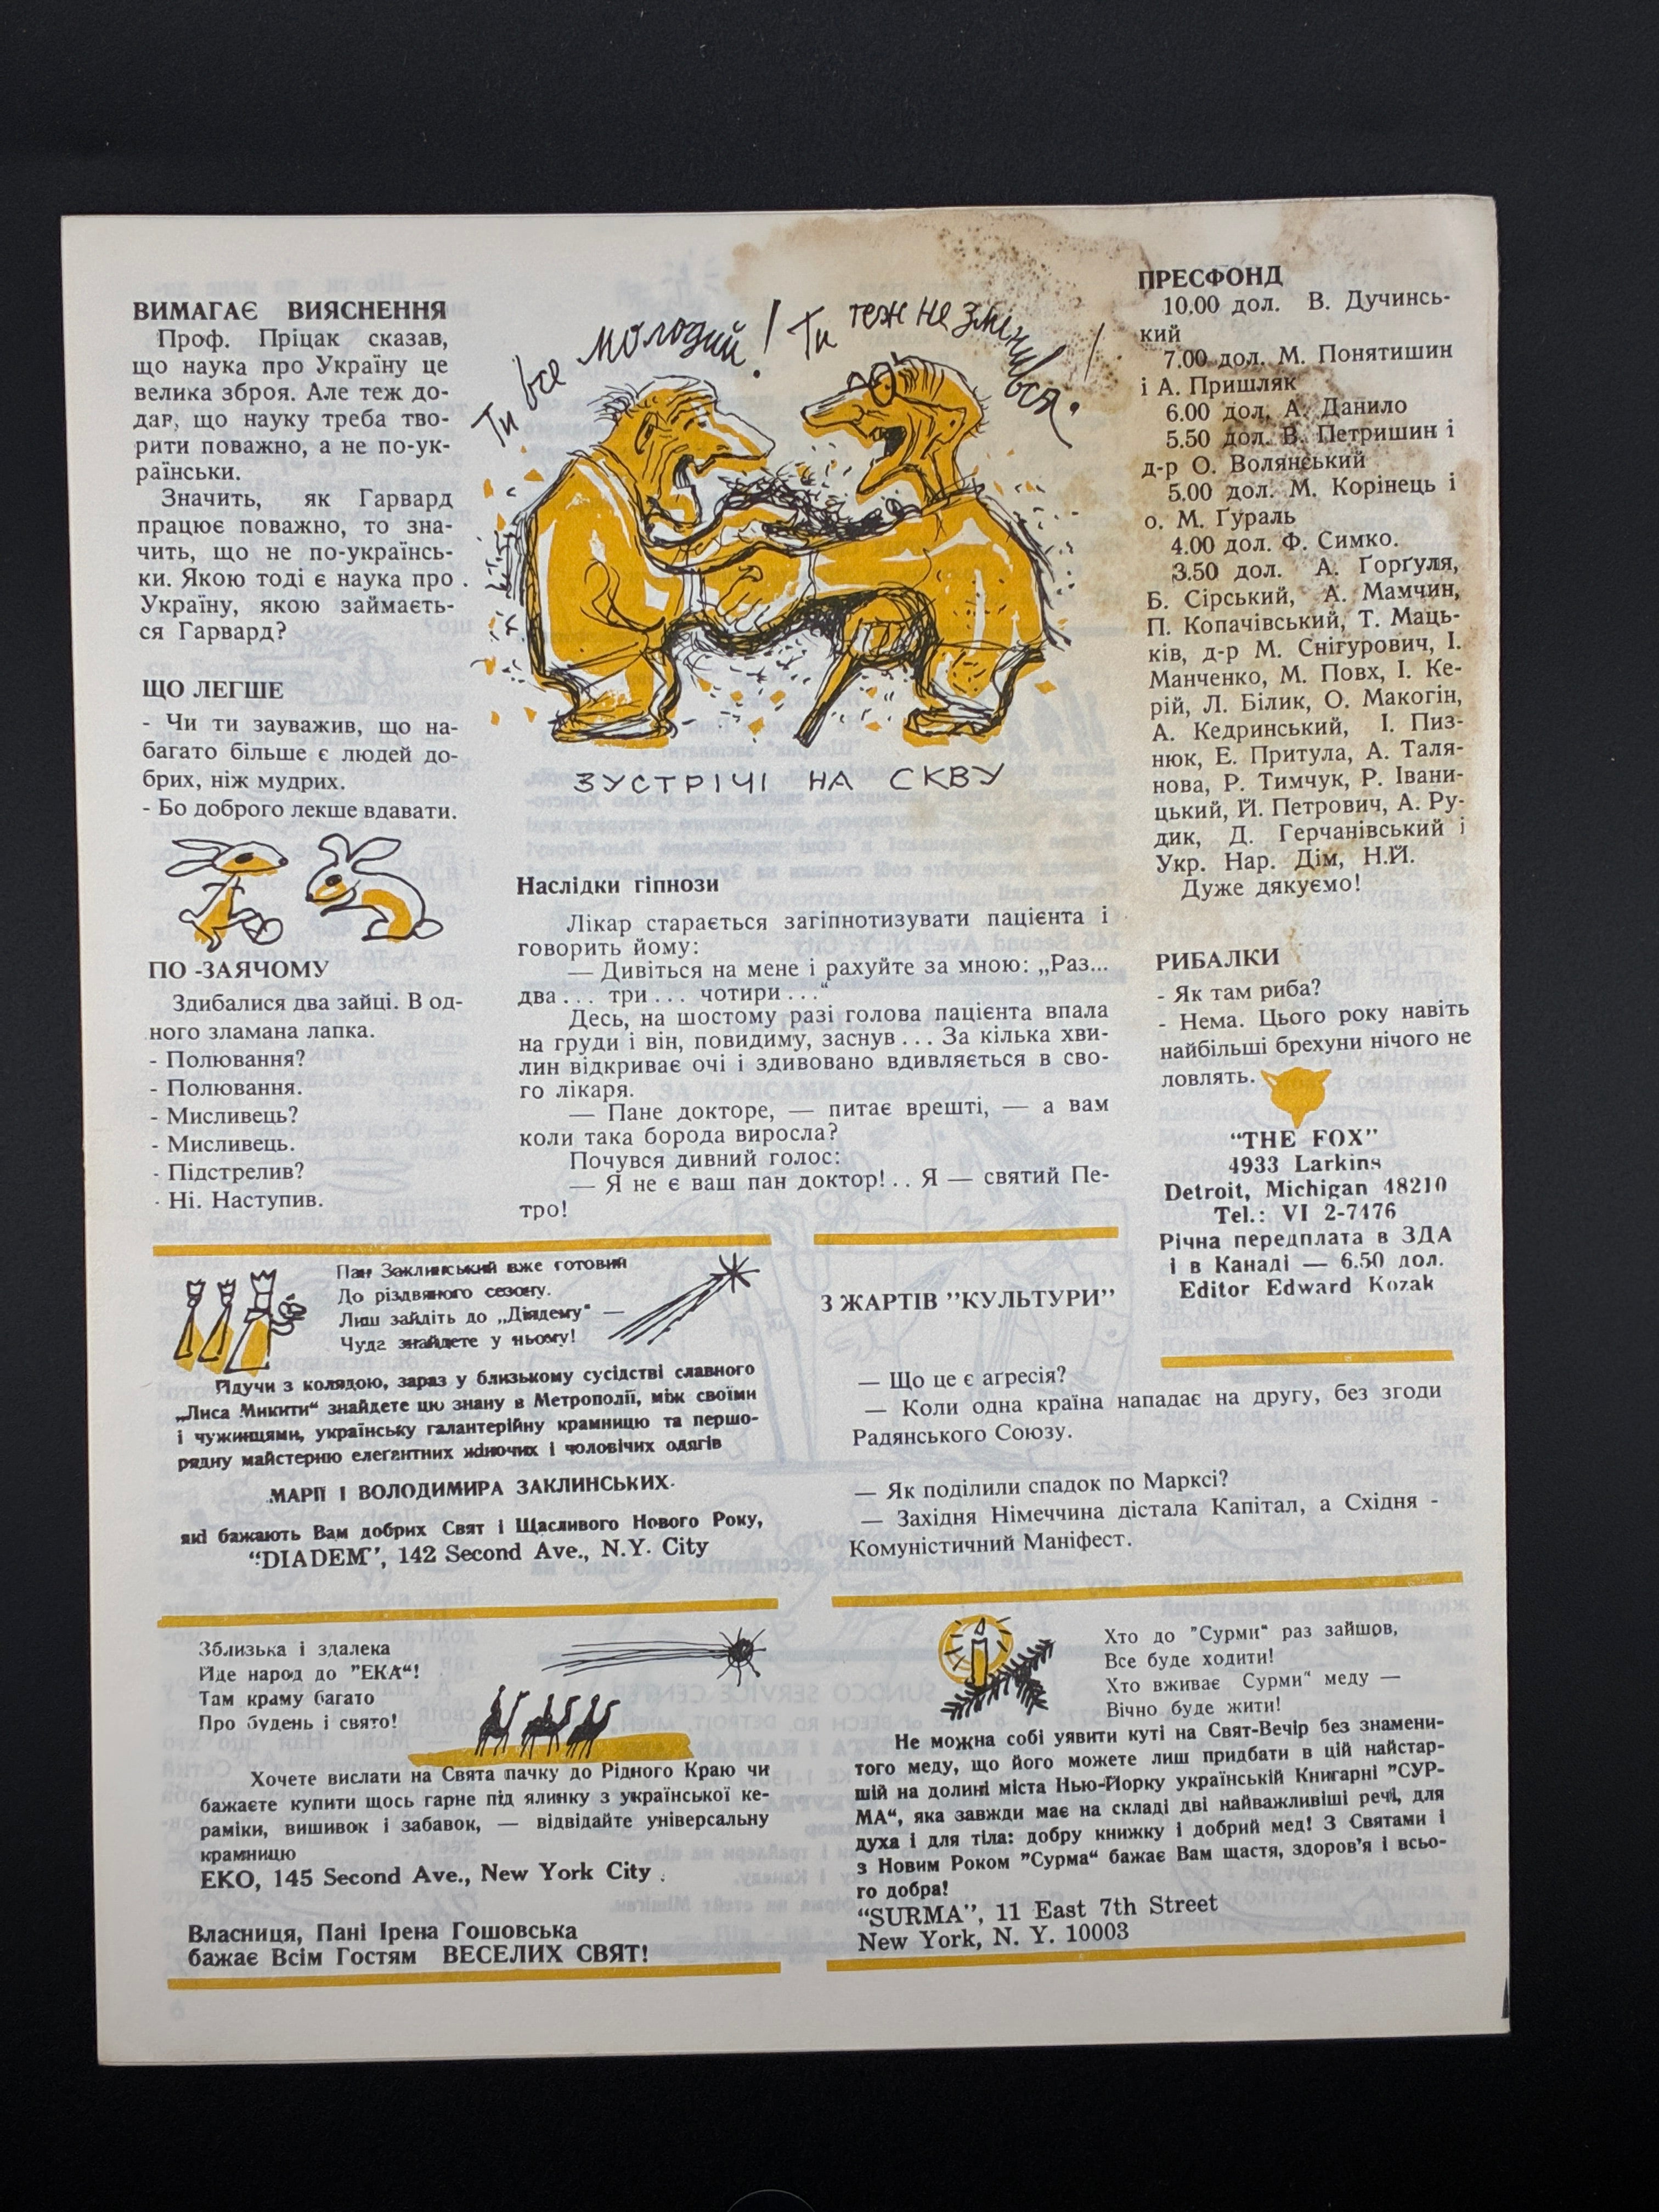 ВИМАГАЄ ВИЯСНЕННЯ
Проф. Пріцак сказав,
що наука про Україну це
велика зброя. Але теж до-
дав, що науку треба тво-
рити поважно, а не по-ук-
раїнськи.
Значить, як Гарвард
працює поважно, то зна-
чить, що не по-українсь-
ки. Якою тоді є наука про
Україну, якою займаєть-
ся Гарвард?
ЩО ЛЕГШЕ
- Чи ти зауважив, що на-
багато більше є людей до-
брих, ніж мудрих.
- Бо доброго лекше вдавати.
ПО -ЗАЯЧОМУ
Здибалися два зайці. В од-
ного зламана лапка.
- Полювання?
- Полювання.
- Мисливець?
- Мисливець.
- Підстрелив?
- Ні. Наступив.
Ти все молодий! Ти теж не змінився!
ЗУСТРІЧІ НА СКВУ
Наслідки гіпнози
Лікар старається загіпнотизувати пацієнта і
говорить йому:
— Дивіться на мене і рахуйте за мною: „Раз...
два... три... чотири..."
Десь, на шостому разі голова пацієнта впала
на груди і він, повидиму, заснув... За кілька хви-
лин відкриває очі і здивовано вдивляється в сво-
го лікаря.
— Пане докторе, — питає врешті, — а вам
коли така борода виросла?
Почувся дивний голос:
— Я не є ваш пан доктор!.. Я — святий Пе-
тро!
ПРЕСФОНД
10.00 дол. В. Дучинсь-
кий
7.00 дол. М. Понятишин
і А. Пришляк
6.00 дол. А. Данило
5.50 дол. В. Петришин і
д-р О. Волянський
5.00 дол. М. Корінець і
о. М. Ґураль
4.00 дол. Ф. Симко.
3.50 дол. А. Ґорґуля,
Б. Сірський, А. Мамчин,
П. Копачівський, Т. Маць-
ків, д-р М. Снігурович, І.
Манченко, М. Повх, І. Ке-
рій, Л. Білик, О. Макогін,
А. Кедринський, І. Пиз-
нюк, Е. Притула, А. Таля-
нова, Р. Тимчук, Р. Івани-
цький, Й. Петрович, А. Ру-
дик, Д. Герчанівський і
Укр. Нар. Дім, Н.Й.
Дуже дякуємо!
РИБАЛКИ
- Як там риба?
- Нема. Цього року навіть
найбільші брехуни нічого не
ловлять.
"THE FOX"
4933 Larkins
Detroit, Michigan 48210
Tel.: VI 2-7476
Річна передплата в ЗДА
і в Канаді — 6.50 дол.
Editor Edward Kozak
Пан Заклинський вже готовий
До різдвяного сезону.
Лиш зайдіть до „Діядему" —
Чуда знайдете у ньому!
Йдучи з колядою, зараз у близькому сусідстві славного
„Лиса Микити" знайдете цю знану в Метрополії, між своїми
і чужинцями, українську галантерійну крамницю та першо-
рядну майстерню елеґантних жіночих і чоловічих одягів
МАРІЇ І ВОЛОДИМИРА ЗАКЛИНСЬКИХ.
які бажають Вам добрих Свят і Щасливого Нового Року,
"DIADEM", 142 Second Ave., N.Y. City
З ЖАРТІВ "КУЛЬТУРИ"
— Що це є аґресія?
— Коли одна країна нападає на другу, без згоди
Радянського Союзу.
— Як поділили спадок по Марксі?
— Західня Німеччина дістала Капітал, а Східня -
Комуністичний Маніфест.
Зблизька і здалека
Йде народ до "ЕКА"!
Там краму багато
Про будень і свято!
Хочете вислати на Свята пачку до Рідного Краю чи
бажаєте купити щось гарне під ялинку з української ке-
раміки, вишивок і забавок, — відвідайте універсальну
крамницю
EKO, 145 Second Ave., New York City.
Власниця, Пані Ірена Гошовська
бажає Всім Гостям ВЕСЕЛИХ СВЯТ!
Хто до "Сурми" раз зайшов,
Все буде ходити!
Хто вживає Сурми" меду —
Вічно буде жити!
Не можна собі уявити куті на Свят-Вечір без знамени-
того меду, що його можете лиш придбати в цій найстар-
шій на долині міста Нью-Йорку українській Книгарні "СУР-
МА", яка завжди має на складі дві найважливіші речі, для
духа і для тіла: добру книжку і добрий мед! З Святами і
з Новим Роком "Сурма" бажає Вам щастя, здоров'я і всьо-
го добра!
"SURMA", 11 East 7th Street
New York, N. Y. 10003